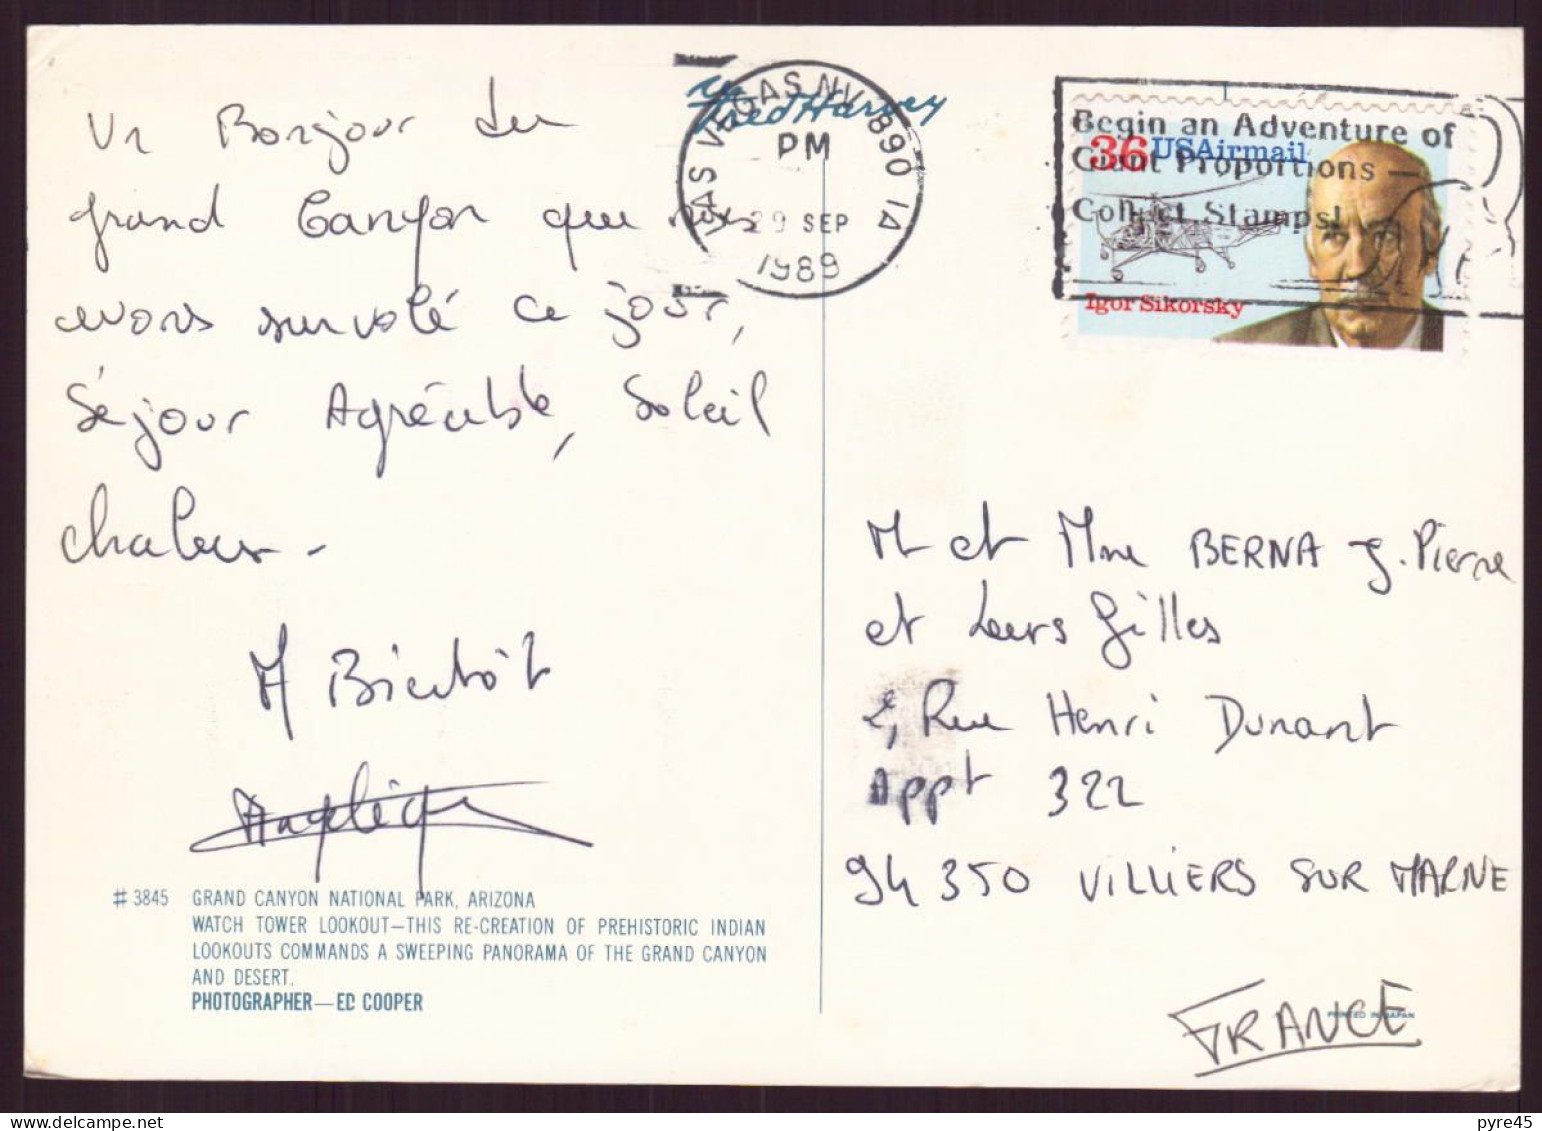 Un Bonjour du
grand Canyon que nous
avons survolé ce jour,
Séjour Agréable, Soleil
chaleur -
A Bientôt
Angélique
# 3845 GRAND CANYON NATIONAL PARK, ARIZONA
WATCH TOWER LOOKOUT—THIS RE-CREATION OF PREHISTORIC INDIAN
LOOKOUTS COMMANDS A SWEEPING PANORAMA OF THE GRAND CANYON
AND DESERT.
PHOTOGRAPHER—ED COOPER
Fred Harvey
LAS VEGAS NV 890 1A
PM
29 SEP
1989
Begin an Adventure of
Giant Proportions —
Collect Stamps!
36 USAirmail
Igor Sikorsky
M et Mme BERNA J. Pierre
et Leurs Filles
2, Rue Henri Dunant
Appt 322
94 350 VILLIERS SUR MARNE
FRANCE
PRINTED IN JAPAN
pyre45